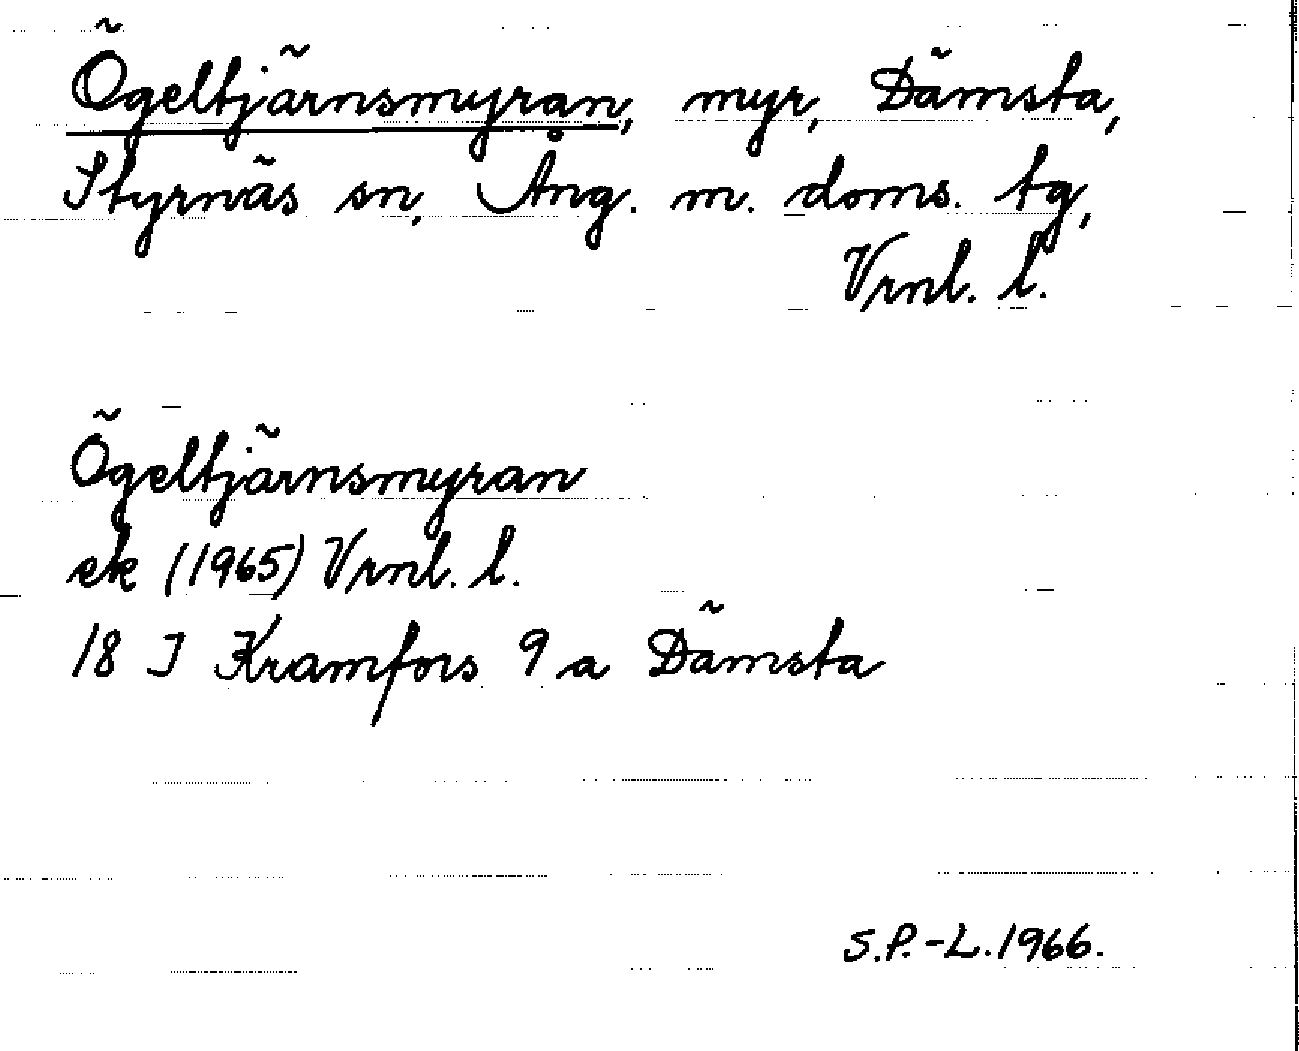 Ögeltjärnsmyran, myr, Dämsta,
Styrnäs sn, Ång. m. doms. tg,
Vrnl. l.
Ögeltjärnsmyran
ek (1965) Vrnl. l.
18 J Kramfors 9 a Dämsta
S.P.-L. 1966.